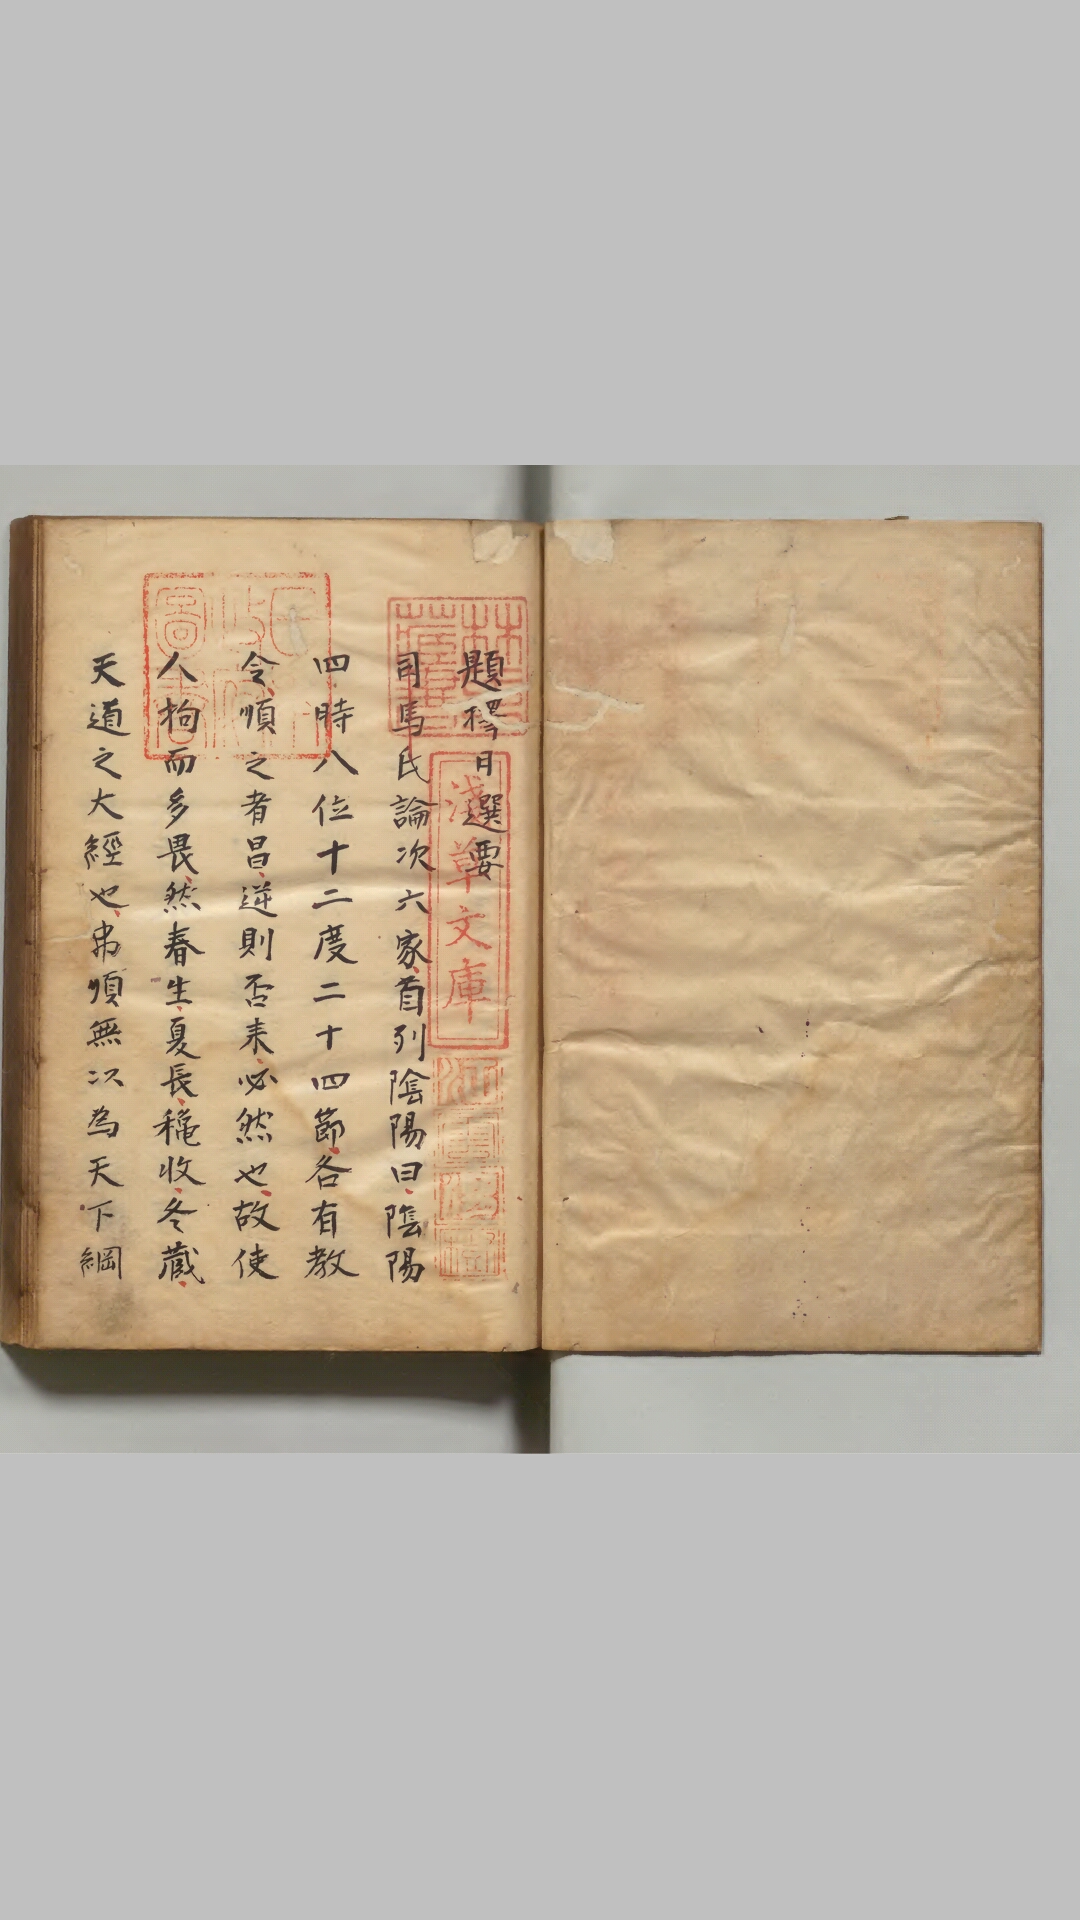 題擇日選要
司馬氏論次六家首列陰陽曰陰陽
四時八位十二度二十四節各有教
令順之者昌逆則否未必然也故使
人拘而多畏然春生夏長穐收冬藏
天道之大經也弗順無以為天下綱
林氏藏書
淺草文庫
江雲渭樹
日本政府圖書